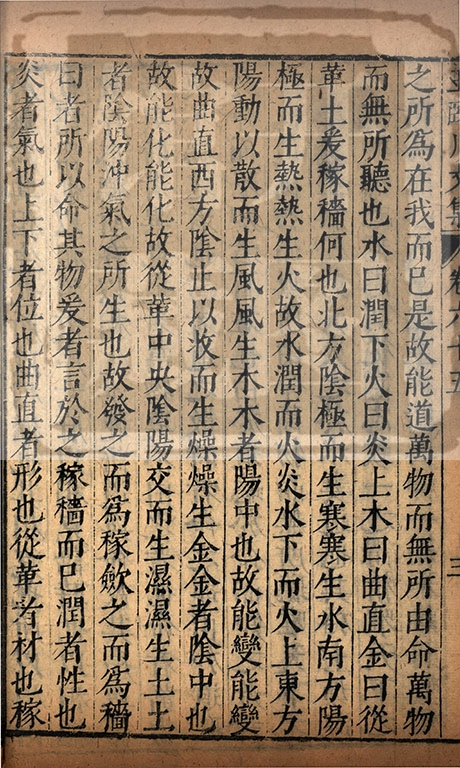 王臨川文集 卷六十五 三
之所爲在我而已是故能道萬物而無所由命萬物
而無所聽也水曰潤下火曰炎上木曰曲直金曰從
革土爰稼穡何也北方陰極而生寒寒生水南方陽
極而生熱熱生火故水潤而火炎水下而火上東方
陽動以散而生風風生木木者陽中也故能變能變
故曲直西方陰止以收而生燥燥生金金者陰中也
故能化能化故從革中央陰陽交而生濕濕生土土
者陰陽沖氣之所生也故發之而爲稼斂之而爲穡
曰者所以命其物爰者言於之稼穡而已潤者性也
炎者氣也上下者位也曲直者形也從革者材也稼